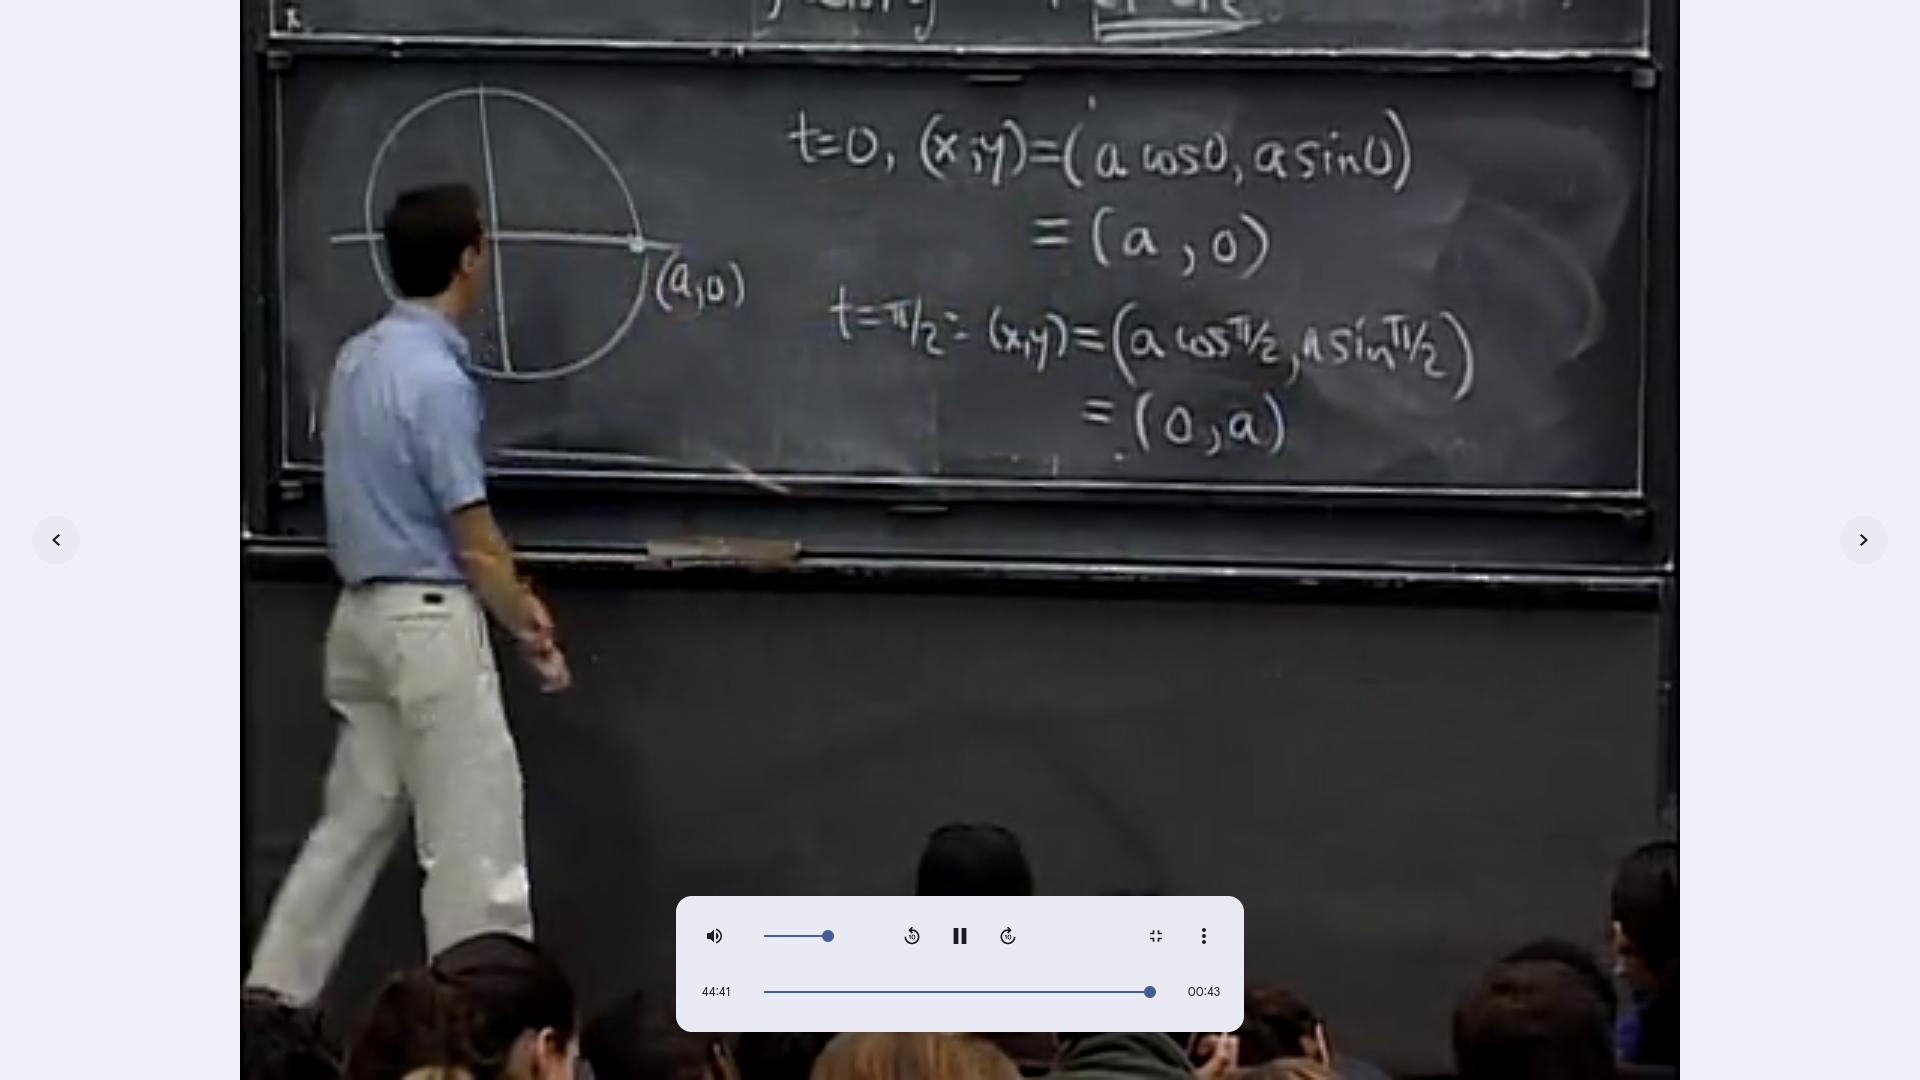 t=0, (x,y)=(a cos0, a sin0)
= (a, 0)
(a,0)
t=π/2: (x,y)=(a cosπ/2, a sinπ/2)
= (0,a)
10
10
44:41
00:43